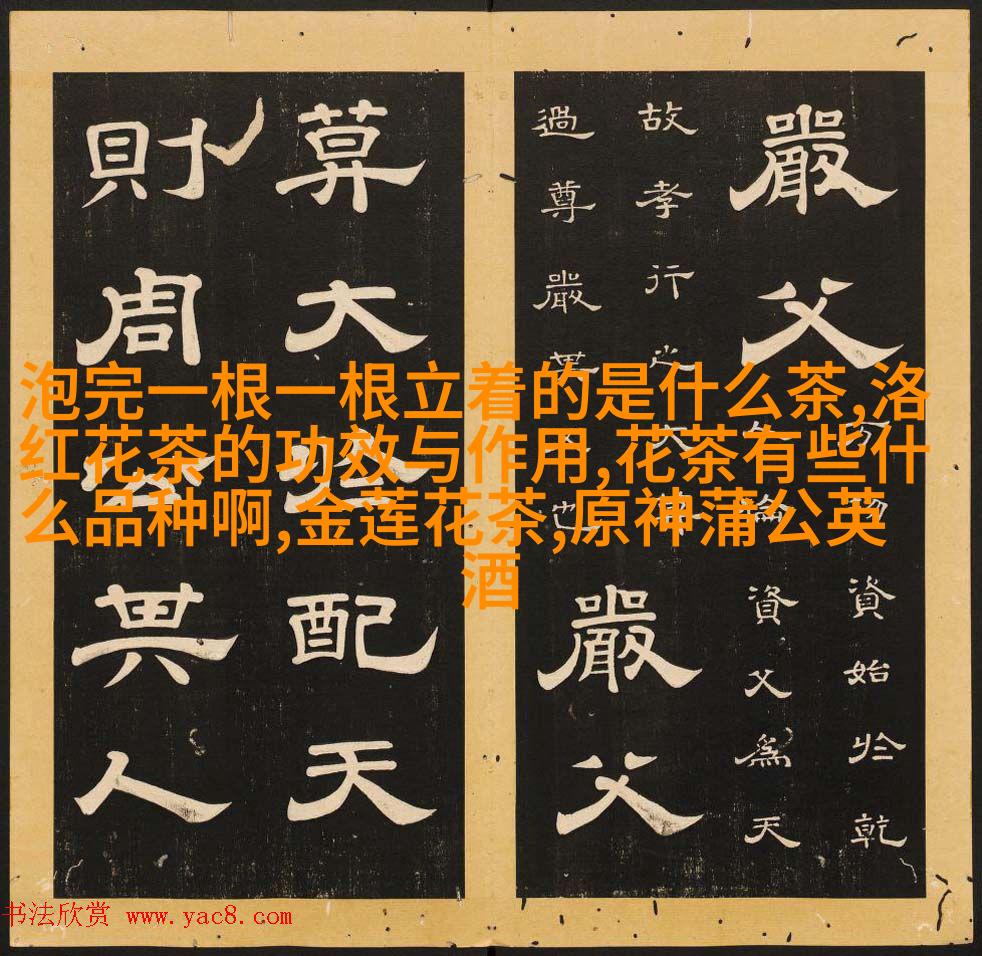 嚴父
資始於乾
資父為天
故孝行
大
過尊嚴其父也
嚴父
莫大於配天
則周公其人
泡完一根一根立着的是什么茶,洛
红花茶的功效与作用,花茶有些什
么品种啊,金莲花茶,原神蒲公英
酒
书法欣赏 www.yac8.com